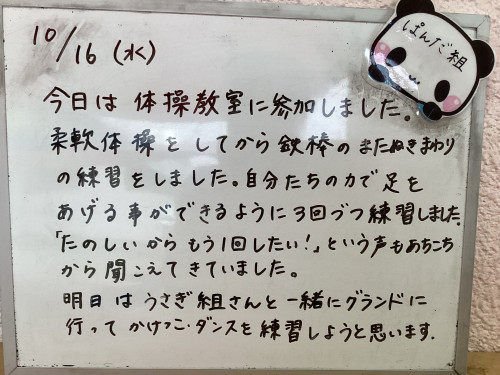 10/16 (水)
ぱんだ組
今日は 体操教室に参加しました。
柔軟体操をしてから鉄棒のまたぬきまわり
の練習をしました。自分たちの力で足を
あげる事ができるように3回づつ練習しました。
「たのしいからもう1回したい!」という声もあちこち
から聞こえてきていました。
明日はうさぎ組さんと一緒にグランドに
行ってかけっこ・ダンスを練習しようと思います.